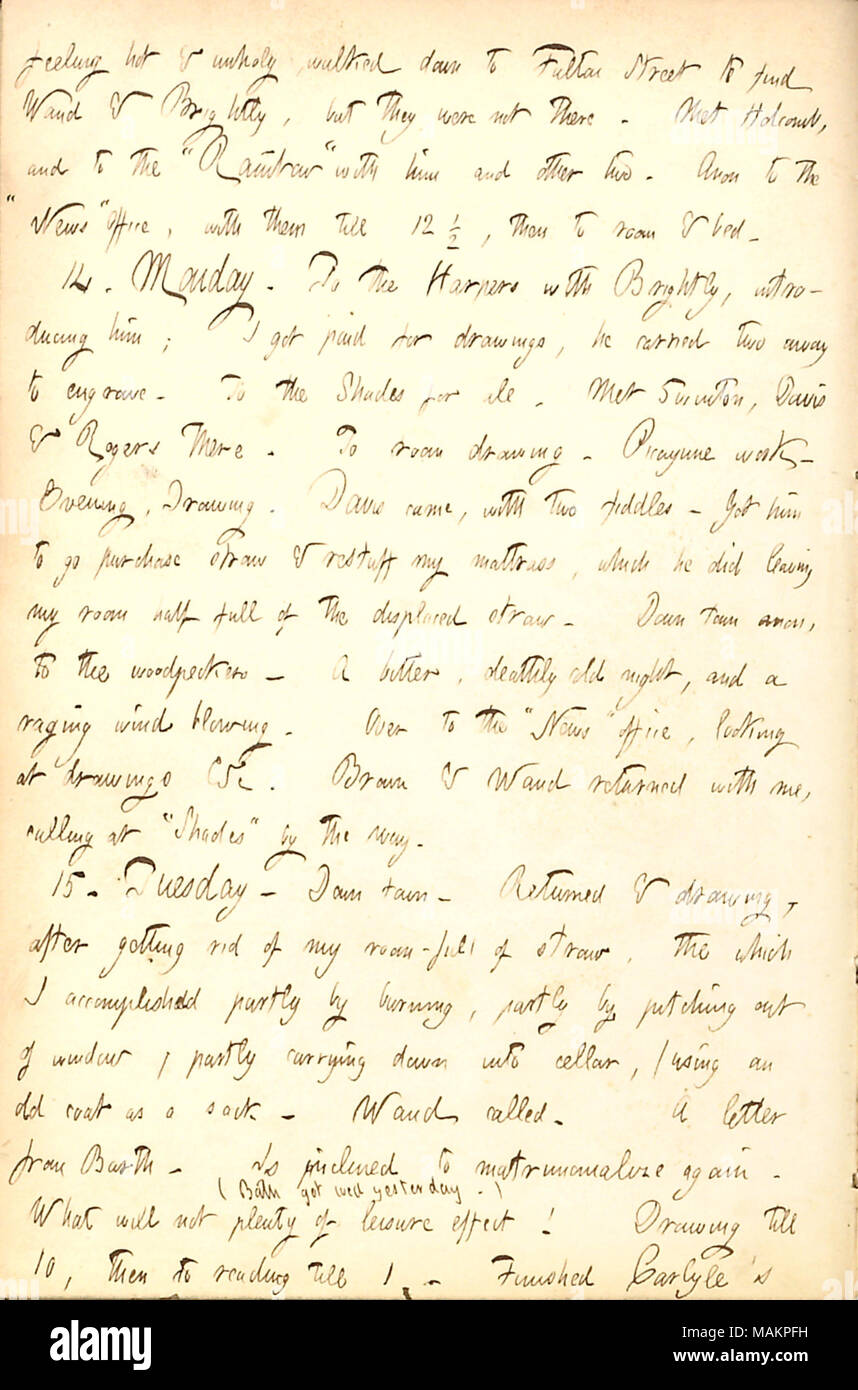 feeling hot & unholy walked down to Fulton Street to find
Waud & Brightly, but they were not there. Met Holcomb,
and to the "Rainbow" with him and other two. Anon to the
"News" office, with them till 12 1/2, then to room & bed.
14. Monday. To the Harpers with Brightly, intro-
ducing him; I got paid for drawings, he carried two away
to engrave. To the Shades for ale. Met Swinton, Davis
& Rogers there. To room drawing. Picayune work.
Evening, Drawing. Davis came, with two fiddles - Got him
to go purchase straw & restuff my mattrass, which he did leaving
my room half full of the displaced straw. Down town anon,
to the woodpeckers - A bitter, deathly cold night, and a
raging wind blowing. Over to the "News" office, looking
at drawings &c. Brown & Waud returned with me,
calling at "Shades" by the way.
15. Tuesday - Down town - Returned & drawing,
after getting rid of my room-full of straw, the which
I accomplished partly by burning, partly by pitching out
of window, partly carrying down into cellar, (using an
old coat as a sack - Waud called. A letter
from Barth - Is inclined to matrimonialize again.
( got wed yesterday. )
What will not plenty of leisure effect! Drawing till
10, then to reading till 1. - Finished Carlyle's
alamy
Image ID: MAKPFH
www.alamy.com